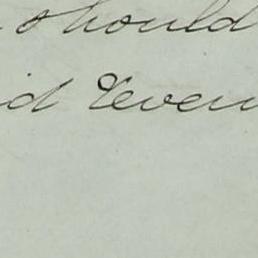 should
id Reven